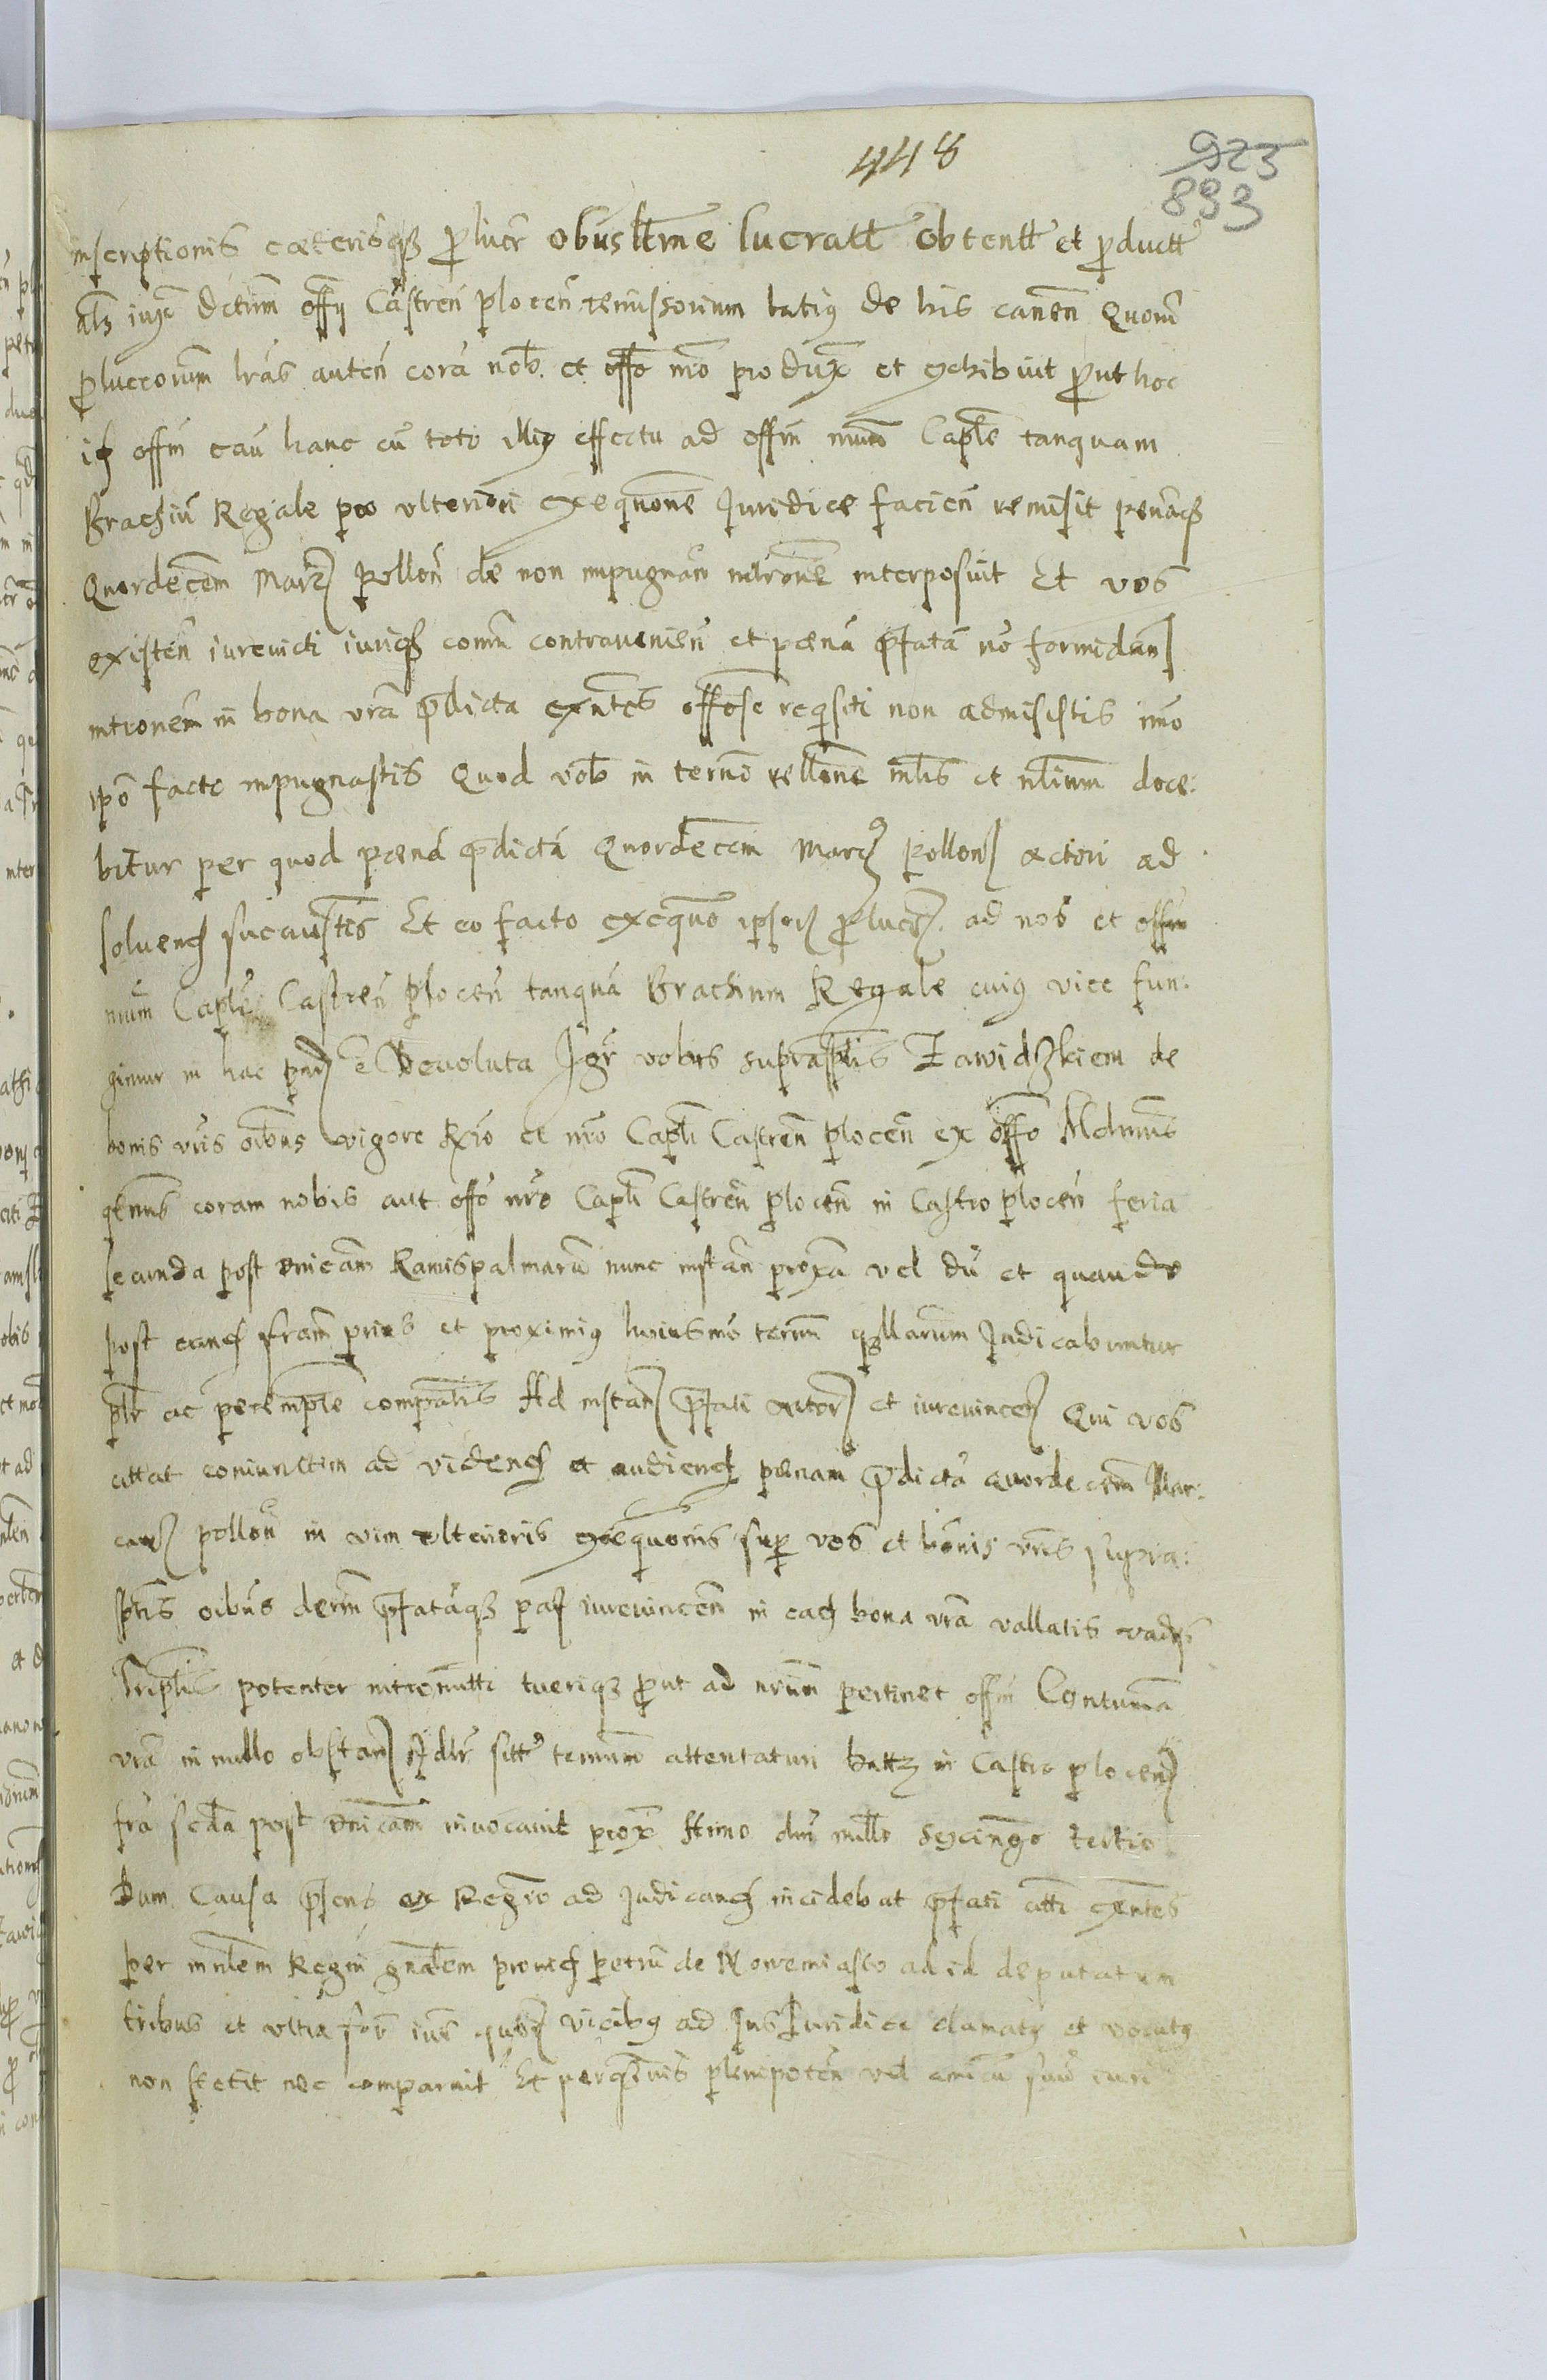 448
923
893
inscriptionis caeterisq₃ p̱lucr̃ obuslt̃me lucratt̃ obtentt̃ et p̱ductt̃
als iuxᵃ Dctum̃ offӱ Castren̄ plocen̄ remissorium latiꝯ de his canen̄ Quom̃
p̱lucrorum̃ l̃ras auten̄ corā nob̃ et offo n̄ro produx̃ et exhibuit p̱ut hoc
offm̄ cau̅ hanc cu̅ toto illiꝯ effectu ad offm̄ n̄rum̃ Capl̃e tanquam
Brachiu̅ Regale pro vlteriori exequōne Juridice facien̄ remisit penãq₃
Quordecem̃ Mar̃ pollon̄ de non impugnan̄ intrōne interposuit Et vos
existen̄ iurevicti iuriq₃ com̃ contravenien̄ et paenā p̄fatā nō formidan̄
intronem̃ in bona vrā p̄dicta exñtes offose reqsiti non admisistis imo
ip̄o facto impugnastis Quod vob̃ in term̃o rellōne et doce:
bitur per quod paenā p̄dictā Quordecem Marc̃ Pollon̄ actori ad
soluenđ succubuistis Et eo facto exequo ipsaꝝ p̱lucr̃ ad nos et offm̄
nrum̃ Capl̃e Castren̄ plocen̄ tanquā Brachium Regale cuiꝯ vice fun:
gimur in hac pãr̃ ē Devoluta Igr̃ vobis supraptis Zawidzkiem de
bonis vr̃is oibus vigore et nr̃o Capl̃i Castren̄ plocen̄ ex offo Mdmus
qtenus coram nobis aut offo nr̃o Capl̃i Castren̄ plocen̄ in Castro plocen̄ feria
secunda post dnicam̃ Ramispalmaru̅ nunc instan̄ proxᵃ vel du̅ et quando
post eand fram̃ prius et proximiꝯ huiusmo̅ term̃ qrllarum̃ Judicabuntur
plr̃ ac peremp̃le compãtis Ad instan̄ p̄fati actor̃ et iurevincen̄ Qui vos
cittat coniunctim ad videnđ et audienđ paenam p̄dictā Quordecem̃ Mar:
caꝝ pollon̄ in vim vlterioris exequōnis sup̱ vos et bonis vr̃is supra:
sptis oibus dcrm̃ p̄fatāq₃ iurevincen̄ in eađ bona vrā vallatis vadӱs
Triplis potenter intromitti tueriq₃ p̱ut ad nrum̃ pertinet offm̄ Contumā
vrā in nullo obstan̄ Adlr̃ sitt̃ termin̄ attentaturi Datt₃ in Castro plocen̄
frã scda post dnicam̃ invocavit prox Anno dni mill̃o sexcingo tertio
Dum Causa p̄sens ex Regr̃o ad Judicanđ incidebat p̄fati citti exñtes
per mñlem Regni gnãlem providꝯ Petru̅ de Nowemiasto ad id deputatum
tribus et vltra for̄ iuris vicibꝯ ad Jus Juridice clamatꝯ et vocatꝯ
non stetit nec comparuit Et plenipoten̄ vel amicu̅ suu̅ iuri